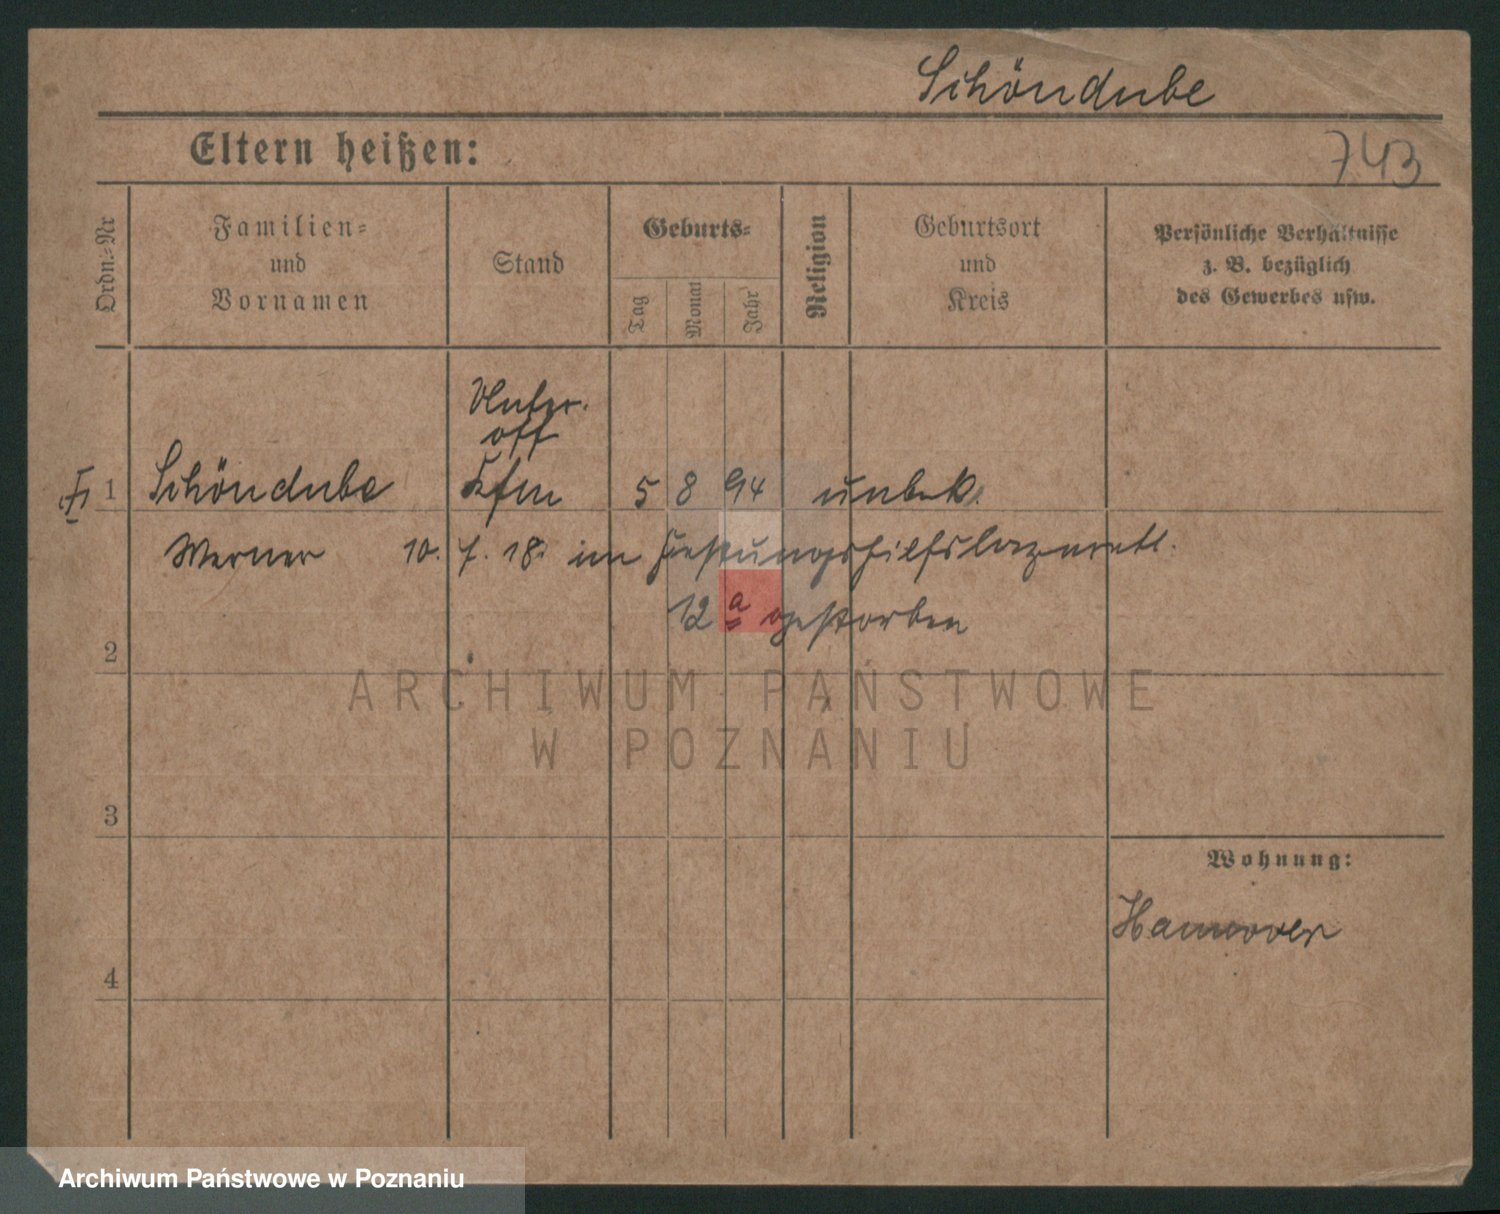 Schöndube
Eltern heißen:
743
Ordn.-Nr
Familien-
und
Vornamen
Stand
Geburts-
Tag
Monat
Jahr
Religion
Geburtsort
und
Kreis
Persönliche Verhältnisse
z. B. bezüglich
des Gewerbes usw.
Unter.
off
1 Schöndube Kfm 5 8 94 unbek.
Werner 10. 7. 18. im Festungshilfslazarett
12 a gestorben
2
ARCHIWUM PAŃSTWOWE
W POZNANIU
3
Wohnung:
Hannover
4
Archiwum Państwowe w Poznaniu